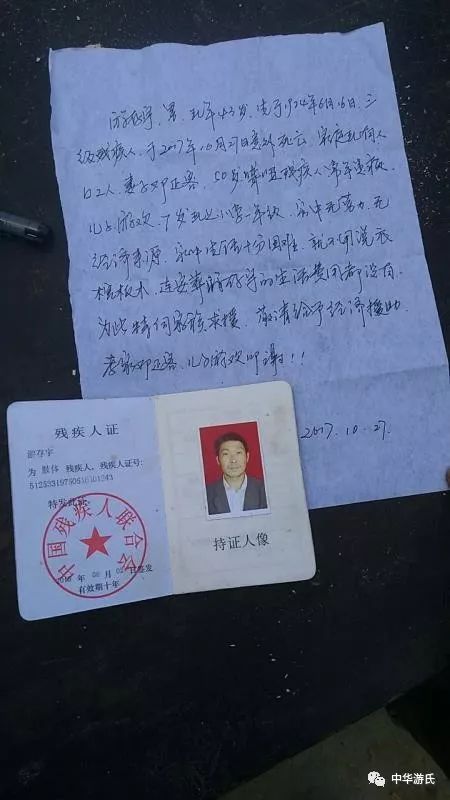 游存宇，男，现年43岁，生于1974年6月16日，三
级残疾人，于2017年10月27日意外死亡，家庭现有人
口2人，妻子邓正容，50岁
残疾人常年逢药
儿子游欢，7岁现达小学一年级，家中无劳力，无
经济来源，家中生活十分困难，就不用说衣
棺板木，连安葬游存宇的生活费用都没有，
为此特向家族求援，敬请给予经济援助
妻邓正容，儿子游欢叩谢！！
2017.10.27.
残疾人证
游存宇
为 肢体 残疾人，残疾人证号：
特发此证
中国残疾人联合会
年 月 日签发
有效期十年
持证人像
中华游氏